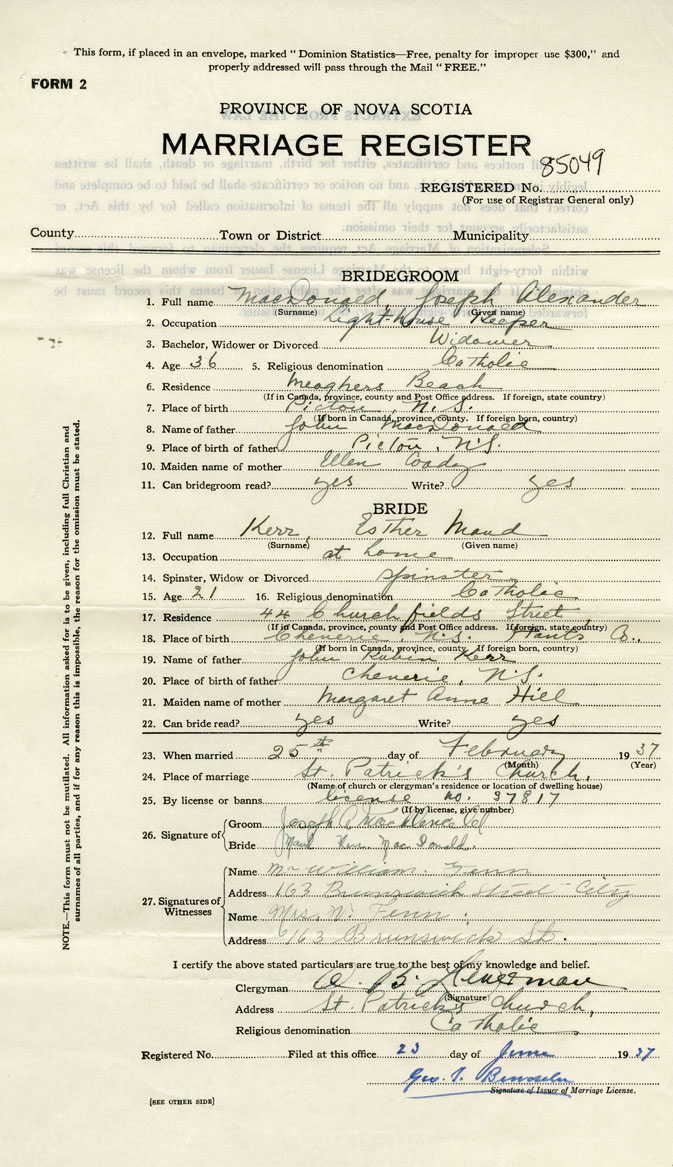 This form, if placed in an envelope, marked "Dominion Statistics—Free, penalty for improper use $300," and
properly addressed will pass through the Mail "FREE."
FORM 2
PROVINCE OF NOVA SCOTIA
MARRIAGE REGISTER
85049
REGISTERED No.
(For use of Registrar General only)
County Town or District Municipality
BRIDEGROOM
1. Full name MacDonald, Joseph Alexander
(Surname) (Given name)
2. Occupation Light-house Keeper
3. Bachelor, Widower or Divorced Widower
4. Age 36 5. Religious denomination Catholic
6. Residence Meaghers Beach
(If in Canada, province, county and Post Office address. If foreign, state country)
7. Place of birth Pictou, N.S.
(If born in Canada, province, county. If foreign born, country)
8. Name of father John MacDonald
9. Place of birth of father Pictou, N.S.
10. Maiden name of mother Ellen Coady
11. Can bridegroom read? yes Write? yes
BRIDE
12. Full name Kerr, Esther Maud
(Surname) (Given name)
13. Occupation at home
14. Spinster, Widow or Divorced spinster
15. Age 21 16. Religious denomination Catholic
17. Residence 44 Churchfields Street
(If in Canada, province, county and Post Office address. If foreign, state country)
18. Place of birth Cheverie, N.S. Hants Co.,
(If born in Canada, province, county. If foreign born, country)
19. Name of father John Rubin Kerr
20. Place of birth of father Cheverie, N.S.
21. Maiden name of mother Margaret Anne Hill
22. Can bride read? yes Write? yes
23. When married 25th day of February 1937
(Month) (Year)
24. Place of marriage St. Patrick's Church,
(Name of church or clergyman's residence or location of dwelling house)
25. By license or banns license no. 97817
(If by license, give number)
26. Signature of
Groom Joseph A MacDonald
Bride Maud Kerr MacDonald.
27. Signatures of Witnesses
Name Mr William Fenn
Address 163 Brunswick Street City
Name Mrs. W. Fenn.
Address 163 Brunswick St.
I certify the above stated particulars are true to the best of my knowledge and belief.
Clergyman
(Signature)
Address St. Patrick's Church,
Religious denomination Catholic
Registered No. Filed at this office 23 day of June 1937
Geo. T.
Signature of Issuer of Marriage License.
[SEE OTHER SIDE]
NOTE.—This form must not be mutilated. All information asked for is to be given, including full Christian and
surnames of all parties, and if for any reason this is impossible, the reason for the omission must be stated.